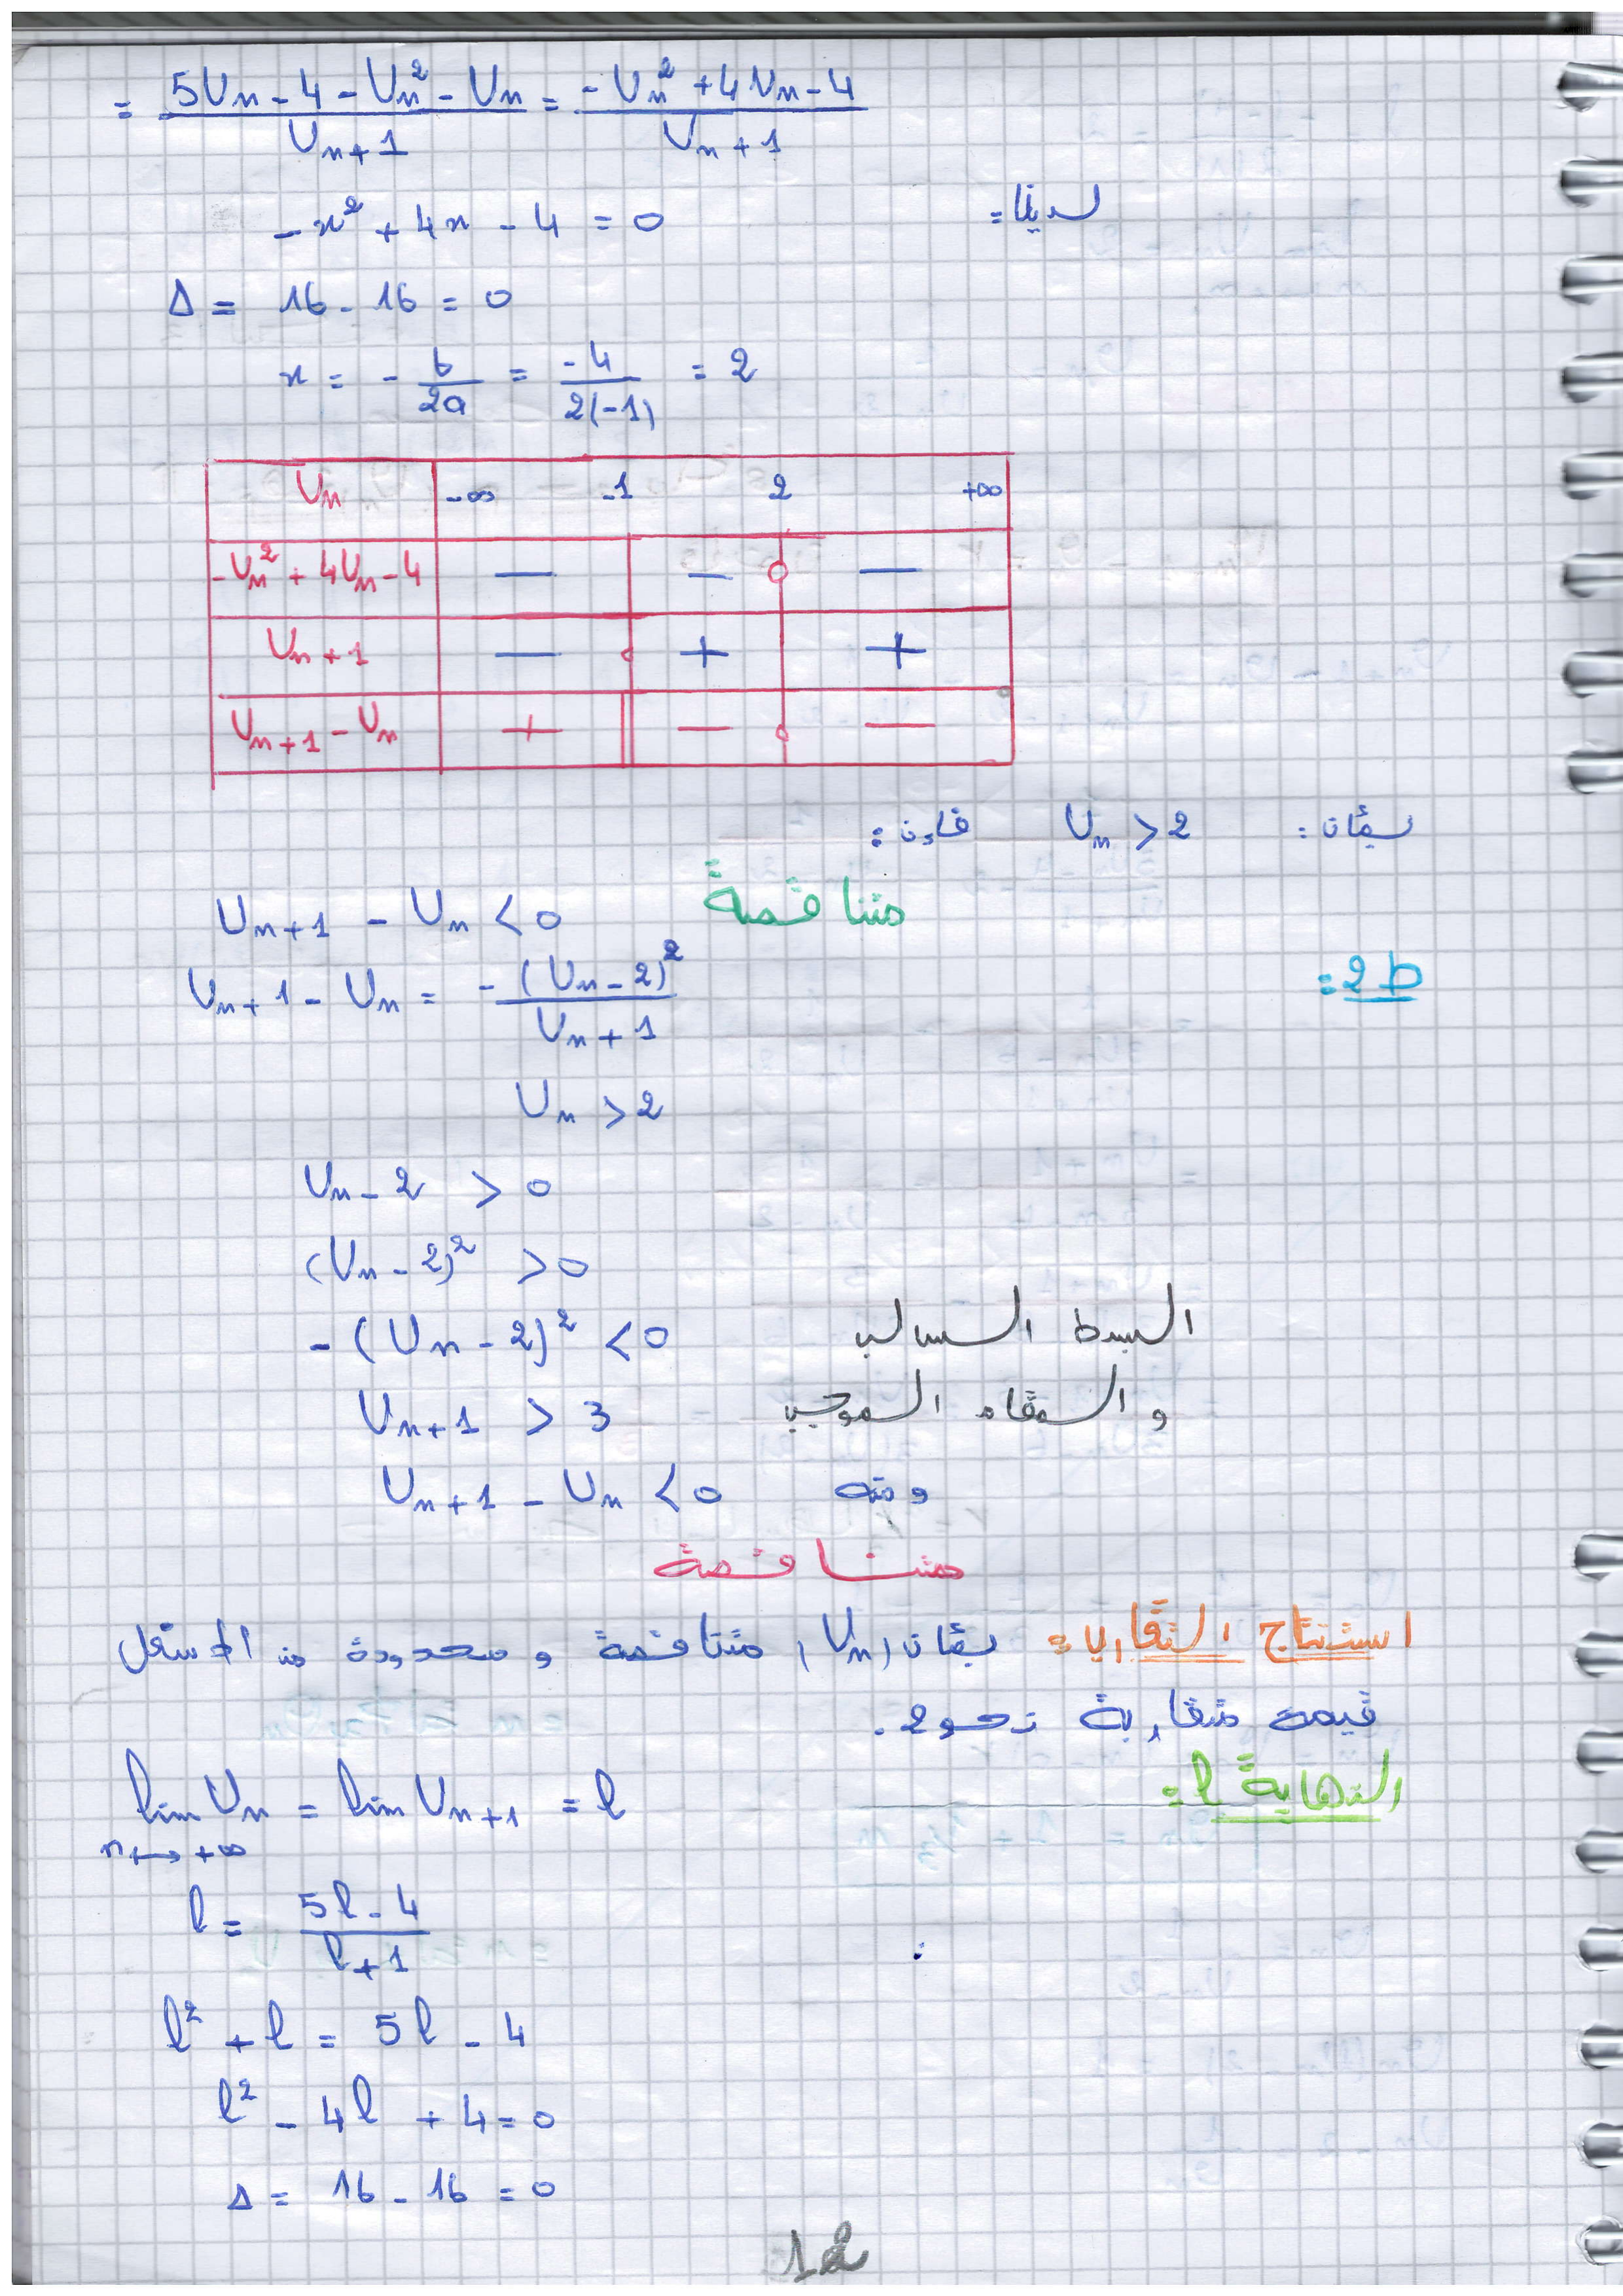 = (5Un - 4 - Un² - Un) / (Un + 1) = (-Un² + 4Un - 4) / (Un + 1)
لدينا:
-x² + 4x - 4 = 0
Δ = 16 - 16 = 0
x = - b/2a = -4 / 2(-1) = 2
Un | -∞ -1 2 +∞
-Un² + 4Un - 4 | — — 0 —
Un + 1 | — 0 + +
Un+1 - Un | + || — 0 —
بمان: Un > 2 فإن:
Un+1 - Un < 0 متناقصة
2b:
Un+1 - Un = -(Un - 2)² / (Un + 1)
Un > 2
Un - 2 > 0
(Un - 2)² > 0
-(Un - 2)² < 0 البسط السالب
Un + 1 > 3 و المقام الموجب
ومنه Un+1 - Un < 0
متناقصة
استنتاج التقارب: بمان (Un) متناقصة و محدودة من الاسفل
قيمة متقاربة نحو 2.
النهاية l:
lim Un = lim Un+1 = l
n→+∞
l = (5l - 4) / (l + 1)
l² + l = 5l - 4
l² - 4l + 4 = 0
Δ = 16 - 16 = 0
12